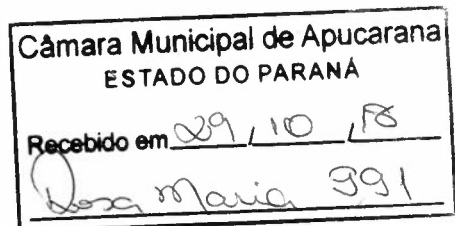 Câmara Municipal de Apucarana
ESTADO DO PARANÁ
Recebido em 29 / 10 / 18
Rosa Maria 991